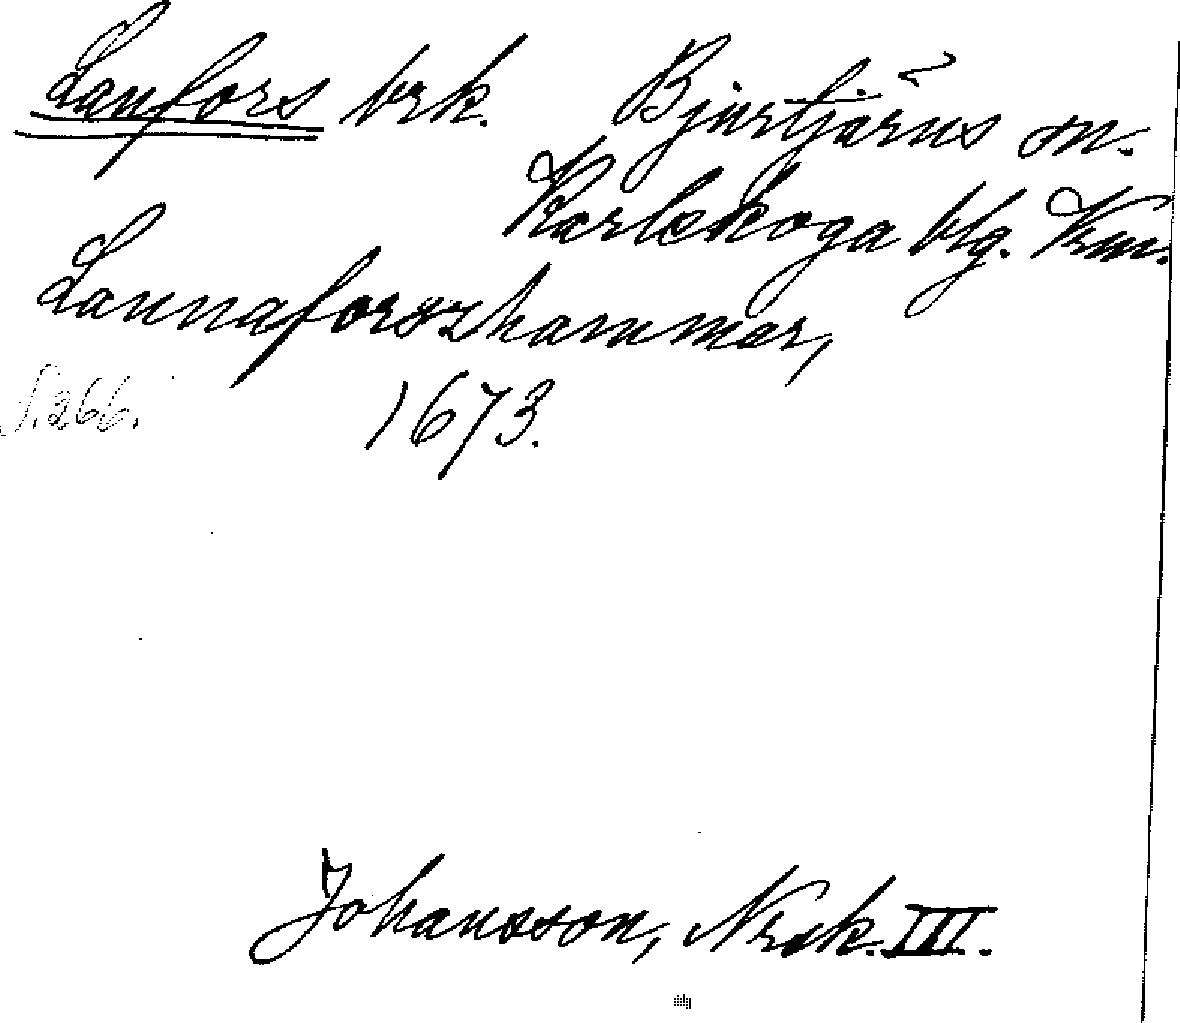 Lanfors brk. Bjurtjärns sn.
Karlskoga blg. Vrm.
Lannaforszhammar,
1673.
S. 266.
Johansson, Nrsk. III.